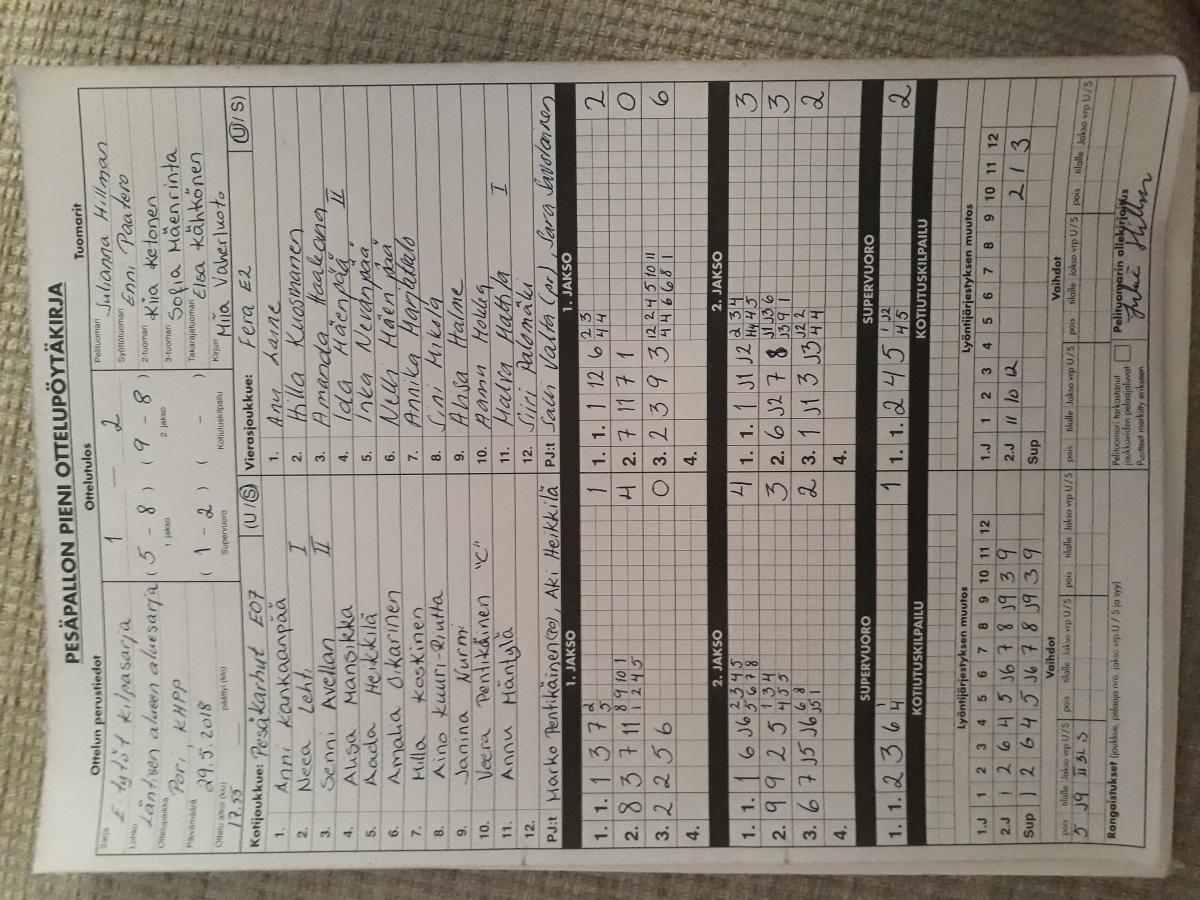 PESÄPALLON PIENI OTTELUPÖYTÄKIRJA
Ottelun perustiedot
Sarja
E-tytöt kilpasarja
Lohko
Läntisen alueen aluesarja
Ottelupaikka
Pori, KHPP
Päivämäärä
29.5.2018
Ottelu alkoi (klo)
17.55
päättyi (klo)
Ottelutulos
1 — 2
( 5 - 8 ) ( 9 - 8 )
1. jakso 2. jakso
( 1 - 2 ) ( - )
Supervuoro Kotiutuskilpailu
Tuomarit
Pelituomari
Julianna Hillman
Syöttötuomari
Enni Paatero
2-tuomari
Kiia Ketonen
3-tuomari
Sofia Mäenrinta
Takarajatuomari
Elsa Kähkönen
Kirjuri
Miia Vaherluoto
Kotijoukkue: Pesäkarhut E07 (U/S)
1. Anni Kankaanpää
2. Neea Lehti I
3. Senni Avellan II
4. Aliisa Mansikka
5. Aada Heikkilä
6. Amalia Oskarinen
7. Hilla Koskinen
8. Aino Kuuri-Riutta
9. Janina Nurmi
10. Veera Penttikäinen "C"
11. Annu Mäntylä
12.
PJ:t Marko Penttikäinen (PJ), Aki Heikkilä
Vierasjoukkue: Fera E2 (U/S)
1. Anu Lanne
2. Hilla Kuosmanen
3. Amanda Haakana
4. Iida Mäenpää II
5. Inka Nevanpää
6. Nelli Mäenpää
7. Annika
8. Sini Mikola
9. Ahsa Halme
10. Aamu Hokka
11. Matla I
12. Siiri Palomäki
PJ:t Salli Valta (PJ), Sara Savolainen
1. JAKSO
1. 1. 1 3 7 2 5 1
2. 8 3 7 11 8 9 10 1 1 2 4 5 4
3. 2 2 5 6 0
4.
1. JAKSO
1. 1. 1 12 6 2 3 4 4 2
2. 7 11 7 1 0
3. 2 3 9 3 12 2 4 5 10 11 4 4 6 6 8 1 6
4.
2. JAKSO
1. 1. 1 6 J6 2 3 4 5 5 6 7 8 4
2. 9 9 2 5 1 3 4 4 5 5 3
3. 6 7 J5 J6 6 8 J5 1 2
4.
2. JAKSO
1. 1. 1 J1 J2 2 3 4 4 5 3
2. 6 J2 7 8 J1 J3 6 J3 9 1 3
3. 1 J1 3 J3 J2 2 4 4 2
4.
SUPERVUORO
1. 1. 2 3 6 1 4 1
SUPERVUORO
1. 1. 2 4 5 1 J2 4 5 2
KOTIUTUSKILPAILU
KOTIUTUSKILPAILU
Lyöntijärjestyksen muutos
1 2 3 4 5 6 7 8 9 10 11 12
1.J
2.J 1 2 6 4 5 J6 7 8 J9 3 9
Sup 1 2 6 4 5 J6 7 8 J9 3 9
Lyöntijärjestyksen muutos
1 2 3 4 5 6 7 8 9 10 11 12
1.J
2.J 11 10 12 2 1 3
Sup
Vaihdot
pois tilalle Jakso vrp U/S pois tilalle Jakso vrp U/S pois tilalle Jakso vrp U/S
5 J9 II 3L S
Vaihdot
pois tilalle Jakso vrp U/S pois tilalle Jakso vrp U/S pois tilalle Jakso vrp U/S
Rangaistukset (joukkue, pelaaja nro, jakso vrp U/S ja syy)
Pelituomari tarkastanut
joukkueiden pelaajaluvat
Puutteet merkitty erikseen
Pelituomarin allekirjoitus